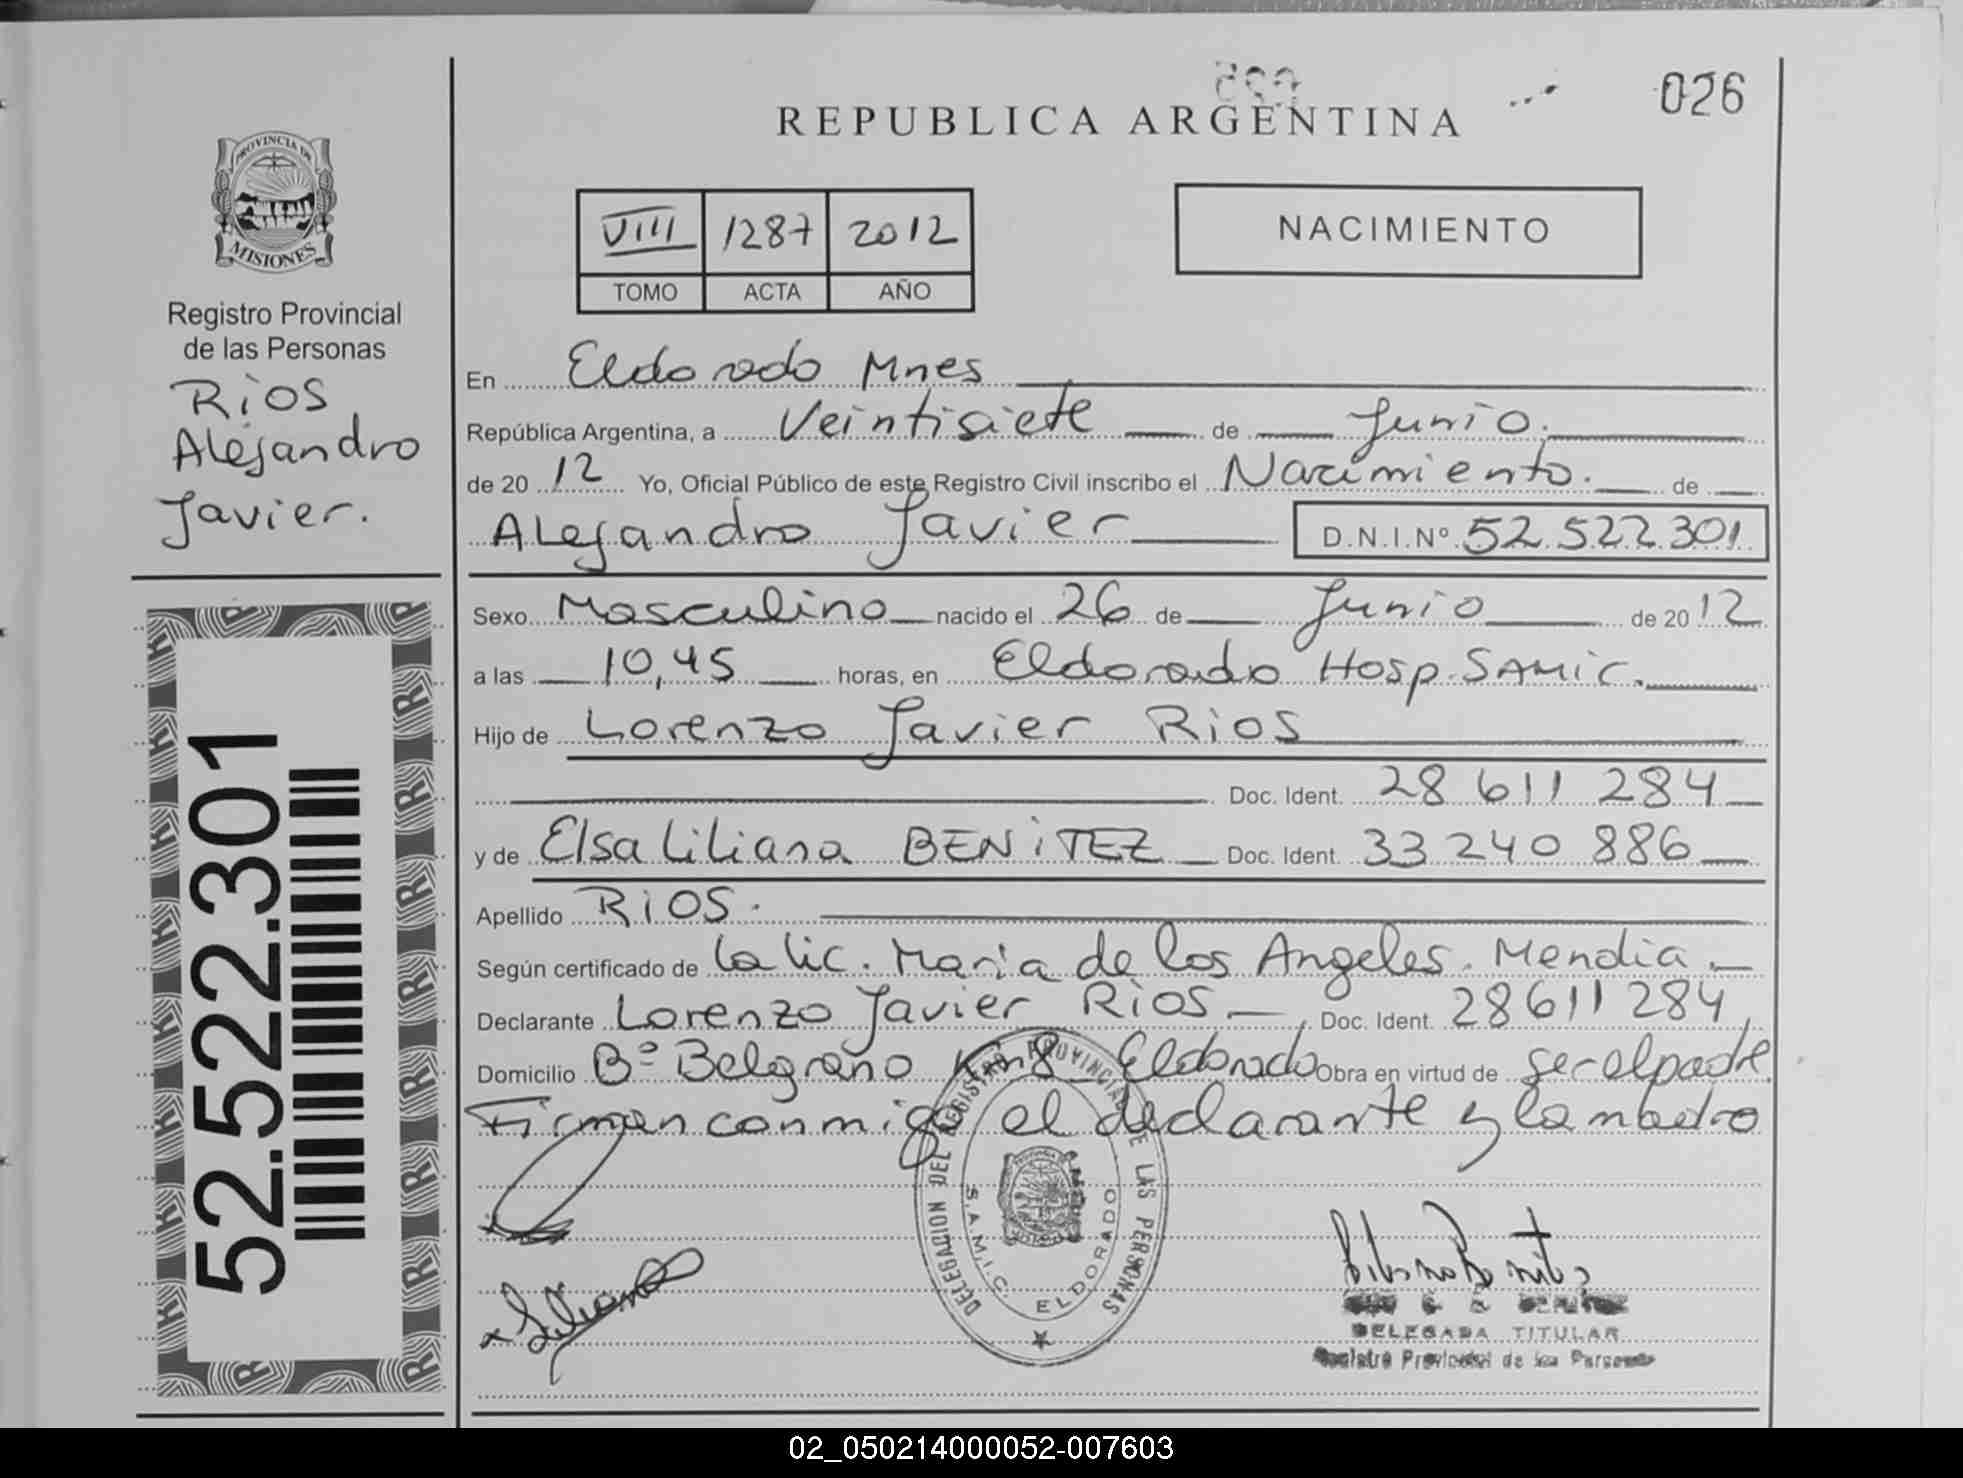 026
REPUBLICA ARGENTINA
PROVINCIA DE
MISIONES
Registro Provincial
de las Personas
Rios
Alejandro
Javier.
52.522.301
VIII 1287 2012
TOMO ACTA AÑO
NACIMIENTO
En Eldorado Mnes
República Argentina, a Veintisiete de Junio.
de 2012 Yo, Oficial Público de este Registro Civil inscribo el Nacimiento. de
Alejandro Javier D.N.I.Nº 52.522.301
Sexo Masculino nacido el 26 de Junio de 2012
a las 10,45 horas, en Eldorado Hosp. SAMIC.
Hijo de Lorenzo Javier Rios
Doc. Ident. 28 611 284
y de Elsa Liliana BENITEZ Doc. Ident. 33 240 886
Apellido Rios.
Según certificado de La Lic. Maria de los Angeles. Mendia.
Declarante Lorenzo Javier Rios Doc. Ident. 28611 284
Domicilio Bº Belgrano Km 8 Eldorado Obra en virtud de ser el padre
Firman conmigo el declarante y la madre
DELEGACION DEL REGISTRO PROVINCIAL DE LAS PERSONAS
S.A.M.I.C. ELDORADO
Liliana
DELEGADA TITULAR
Registro Provincial de las Personas
02_050214000052-007603